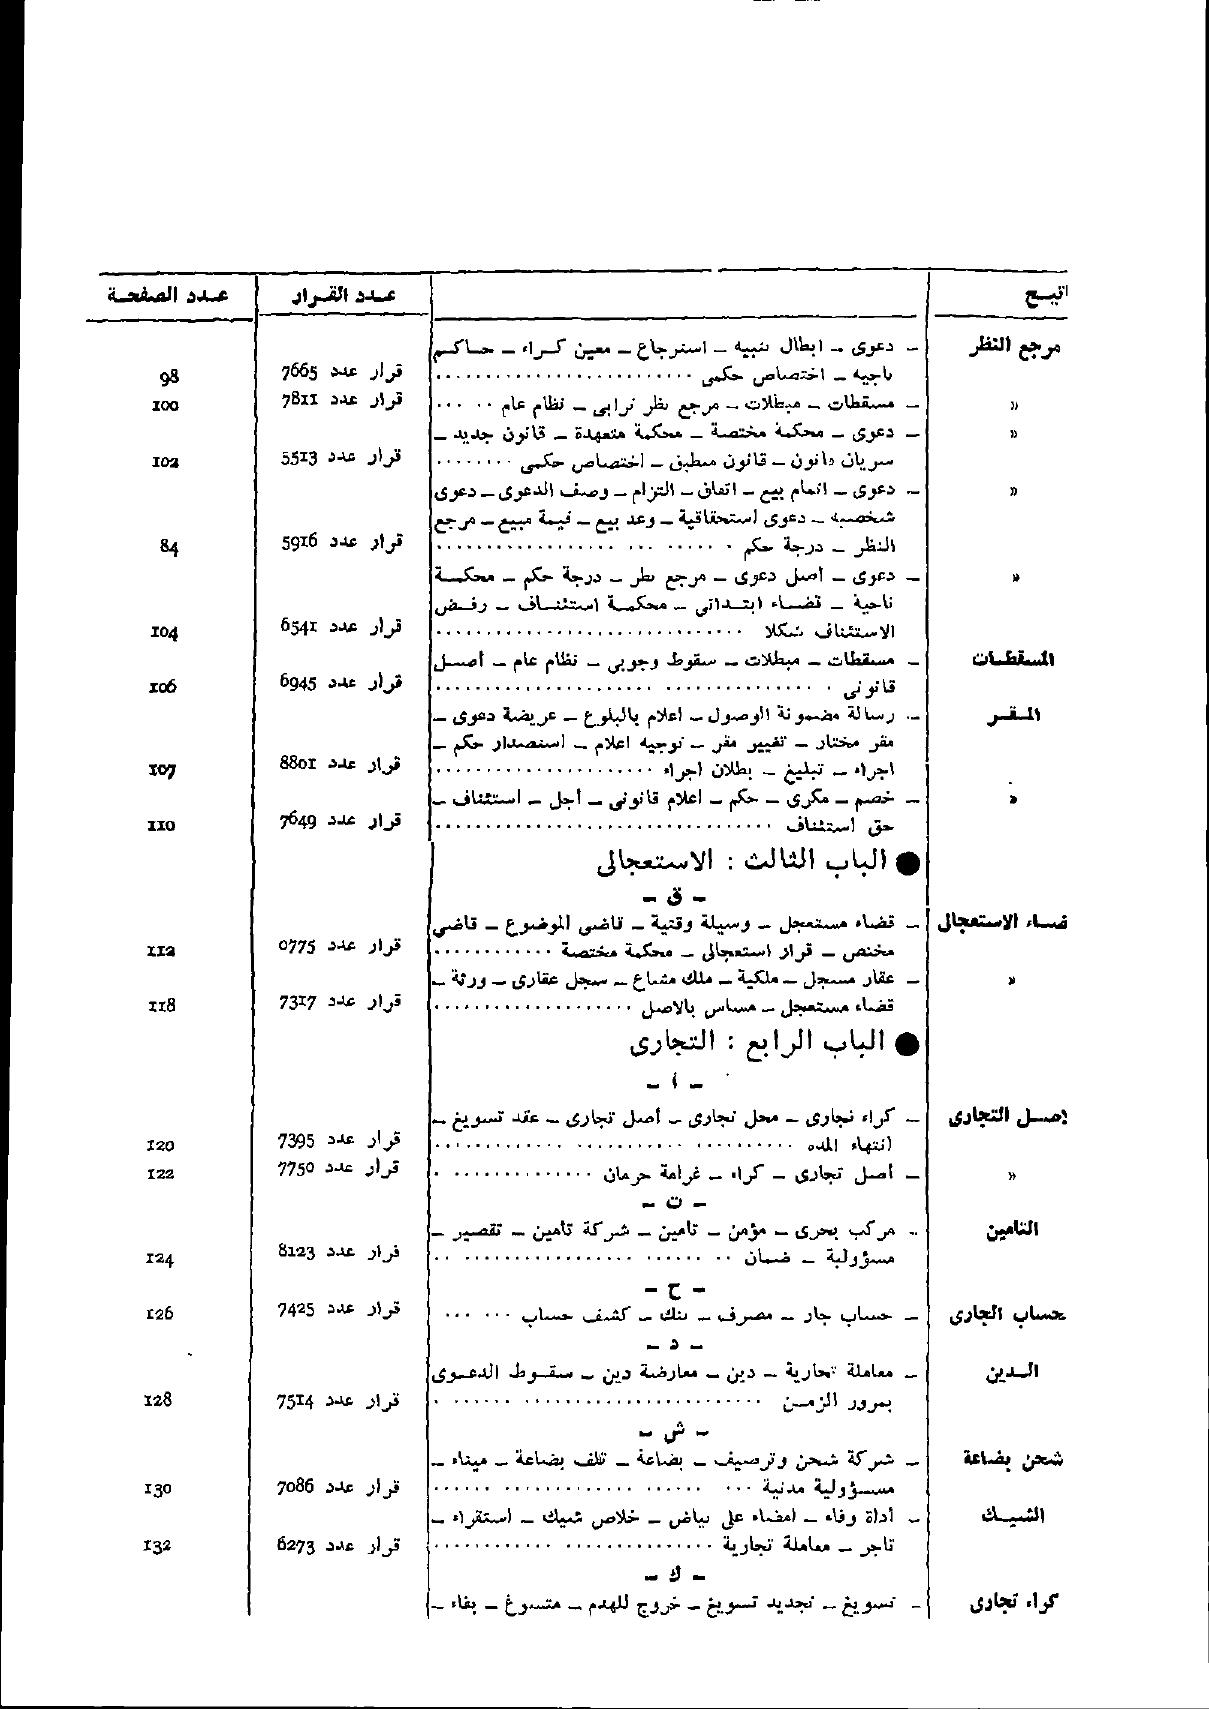 اتبع عدد القرار عدد الصفحة
مرجع النظر – دعوى – ابطال تنبيه – استرجاع – معين كراء – حاكم
ناحية – اختصاص حكمى .......... قرار عدد 7665 98
» – مسقطات – مبطلات – مرجع نظر ترابى – نظام عام ..... قرار عدد 7811 100
» – دعوى – محكمة مختصة – محكمة متعهدة – قانون جديد –
سريان قانون – قانون منطبق – اختصاص حكمى ........ قرار عدد 5513 102
» – دعوى – اتمام بيع – اتفاق – التزام – وصف الدعوى – دعوى
شخصية – دعوى استحقاقية – وعد بيع – قيمة مبيع – مرجع
النظر – درجة حكم .......... قرار عدد 5916 84
» – دعوى – أصل دعوى – مرجع نظر – درجة حكم – محكمة
ناحية – قضاء ابتدائى – محكمة استئناف – رفض
الاستئناف شكلا .......... قرار عدد 6541 104
المسقطات – مسقطات – مبطلات – سقوط وجوبى – نظام عام – أصل
قانونى .......... قرار عدد 6945 106
المقر – رسالة مضمونة الوصول – اعلام بالبلوغ – عريضة دعوى –
مقر مختار – تغيير مقر – توجيه اعلام – استصدار حكم –
اجراء – تبليغ – بطلان اجراء .......... قرار عدد 8801 107
» – خصم – مكرى – حكم – اعلام قانونى – أجل – استئناف –
حق استئناف .......... قرار عدد 7649 110
● الباب الثالث : الاستعجالى
– ق –
قضاء الاستعجال – قضاء مستعجل – وسيلة وقتية – قاضى الموضوع – قاضى
مختص – قرار استعجالى – محكمة مختصة .......... قرار عدد 0775 112
» – عقار مسجل – ملكية – ملك مشاع – سجل عقارى – ورثة –
قضاء مستعجل – مساس بالاصل .......... قرار عدد 7317 118
● الباب الرابع : التجارى
– أ –
اصل التجارى – كراء تجارى – محل تجارى – أصل تجارى – عقد تسويغ –
انتهاء المدة .......... قرار عدد 7395 120
» – أصل تجارى – كراء – غرامة حرمان .......... قرار عدد 7750 122
– ت –
التامين – مركب بحرى – مؤمن – تامين – شركة تأمين – تقصير –
مسؤولية – ضمان .......... قرار عدد 8123 124
– ح –
حساب الجارى – حساب جار – مصرف – بنك – كشف حساب ..... قرار عدد 7425 126
– د –
الدين – معاملة تجارية – دين – معارضة دين – سقوط الدعوى
بمرور الزمن .......... قرار عدد 7514 128
– ش –
شحن بضاعة – شركة شحن وترصيف – بضاعة – تلف بضاعة – ميناء –
مسؤولية مدنية .......... قرار عدد 7086 130
الشيك – أداة وفاء – امضاء على بياض – خلاص شيك – استقراء –
تاجر – معاملة تجارية .......... قرار عدد 6273 132
– ك –
كراء تجارى – تسويغ – تجديد تسويغ – خروج للهدم – متسوغ – بقاء –